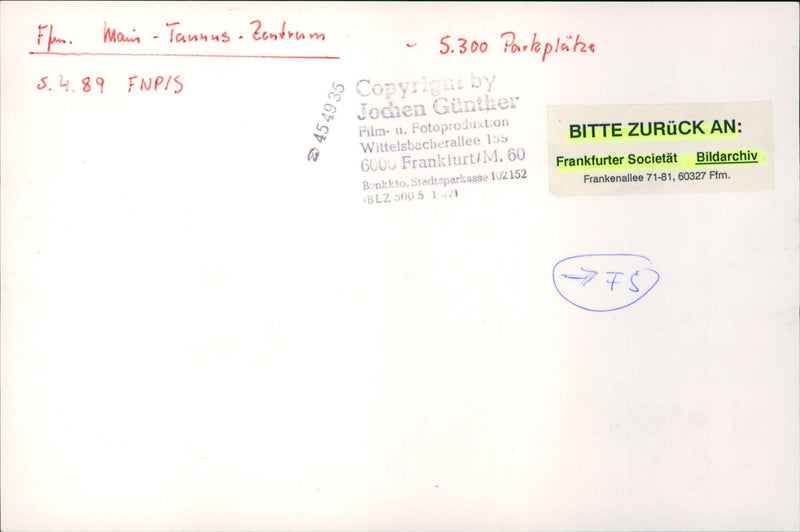 Ffm. Main-Taunus-Zentrum - 5.300 Parkplätze
5.4.89 FNP/S
☎ 454935
Copyright by
Jochen Günther
Film- u. Fotoproduktion
Wittelsbacherallee
6000 Frankfurt/M. 60
Bankkto. Stadtsparkasse 102152
(BLZ
BITTE ZURüCK AN:
Frankfurter Societät Bildarchiv
Frankenallee 71-81, 60327 Ffm.
→ FS